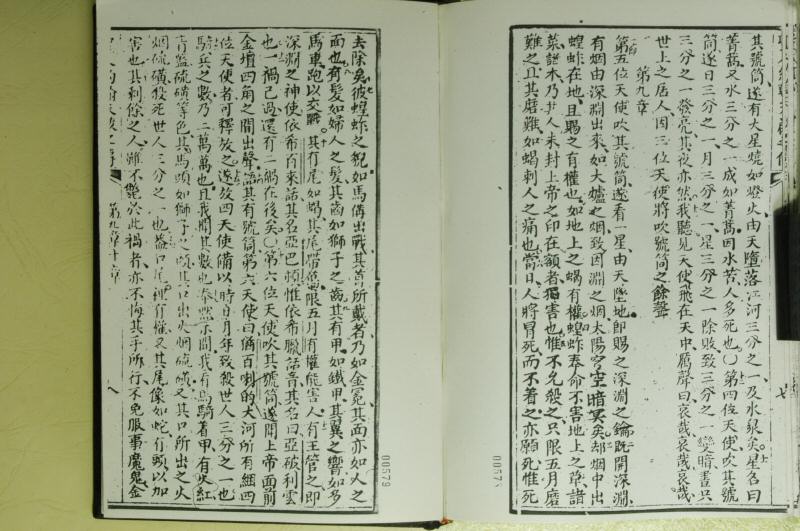 其號筒遂有大星燒如燈火由天墮落江河三分之一及水泉矣星名曰
菁蒿又水三分之一成如菁蒿因水苦人多死也〇第四位天使吹其號
筒遂日三分之一月三分之一星三分之一除敗致三分之一變暗晝只
三分之一發亮其夜亦然我聽見天使飛在天中厲聲曰哀哉哀哉哀哉
世上之居人因三位天使將吹號筒之餘聲
第九章
第五位天使吹其號筒遂看一星由天墜地即賜之深淵之鑰既開深淵
有烟由深淵出來如大爐之烟致因淵之烟太陽穹空暗冥矣却烟中出
蝗蚱在地且賜之有權也如地上之蝎有權蝗蚱奉命不害地上之草諸
菜諸木乃廾人未封上帝之印在額者獨害也惟不允殺之只限五月磨
難之且其磨難如蝎刺人之痛也當日人將冒死而不着之亦願死惟死
去除矣彼蝗蚱之貌如馬偹出戰其首所戴者乃如金冕其面亦如人之
面也有髮如婦人之髮其齒如獅子之齒其有甲如鐵甲其翼之響如多
馬車跑以交戰其有尾如蝎其尾帶鈎限五月有權能害人有王管之即
深淵之神使依希百來話其名亞巴頓惟依希臘話音其名曰亞破利雲
也一禍己過還有二禍在後矣〇第六位天使吹其號筒遂聞上帝面前
金壇四角之間出聲話其有號筒第六天使曰偁百喇的大河所有綑四
位天使者可釋放之遂放四天使備以時日月年致殺世人三分之一也
騎兵之數乃二萬萬也且我聞其數也奉黙示間我看馬騎着甲有火紅
青藍硫磺等色其馬頭如獅子之頭其口出火烟硫磺又其口所出之火
烟硫磺殺死世人三分之一也蓋口尾裡有權又其尾像如蛇有頭以加
害也其利餘之人雖不斃於此禍者亦不悔其手所行不免服事魔鬼金
第九章十章
八
七
00579
0057